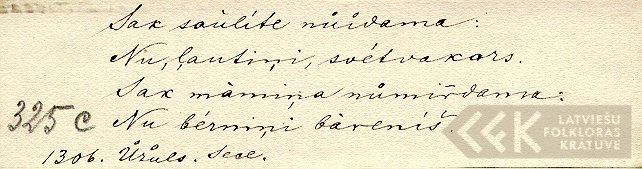 Sak saulīte nůīdama:
Nu, ļautiņi, svētvakars.
Sak māmiņa nůmiŕdama:
325 c Nu bērniņi bāreniš.
1306. Sece.
LATVIEŠU
FOLKLORAS
KRATUVE